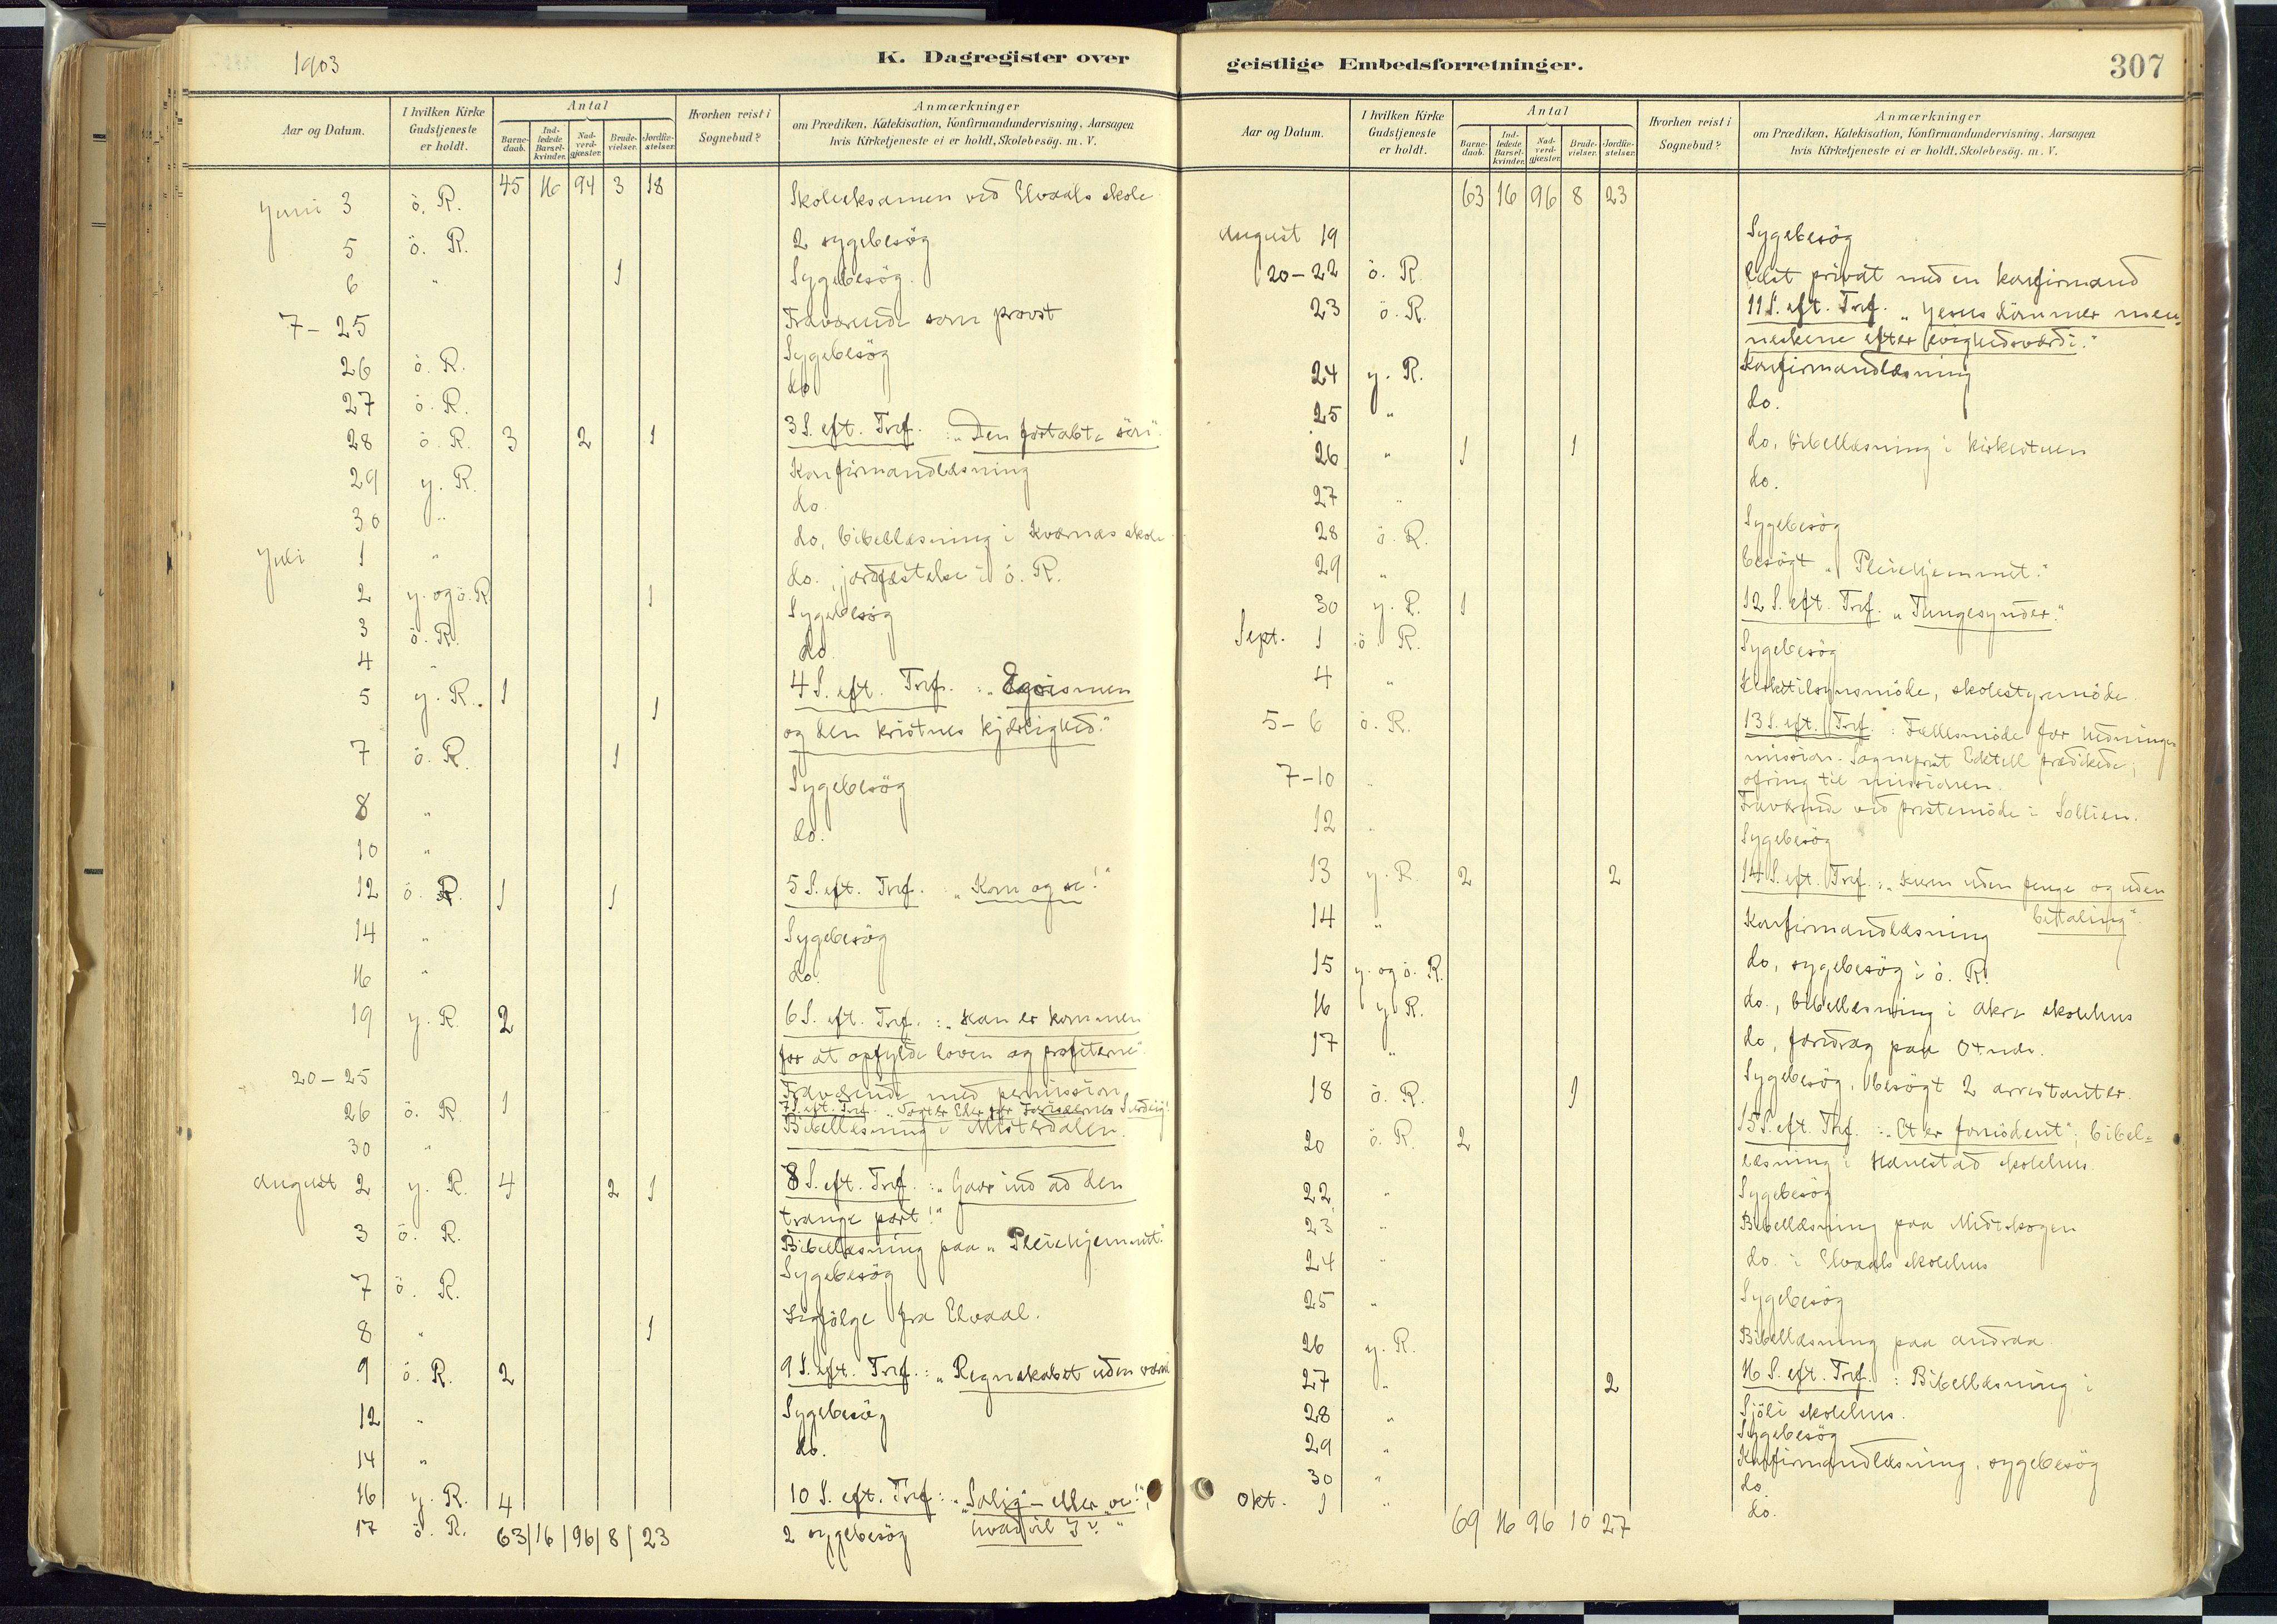 1903
K. Dagregister over
Aar og Datum.
I hvilken Kirke Gudstjeneste er holdt.
Antal
Barnedaab.
Indledede Barselkvinder.
Nadverdgjæster.
Brudevielser.
Jordfæstelser.
Hvorhen reist i Sognebud?
Anmærkninger
om Prædiken, Katekisation, Konfirmandundervisning, Aarsagen
hvis Kirketjeneste ei er holdt, Skolebesög. m. V.
45 16 94 3 18
Juni 3 ö. R. Skoleeksamen ved Elvaals skole
5 ö. R. 2 sygebesög
6 " 1 Sygebesög.
7-25 Fraværende som provst
26 ö. R. Sygebesög
27 ö. R. do
28 ö. R. 3 2 1 3 S. eft. Tref. : "Den fortabte sön".
29 y. R. Konfirmandlæsning
30 " do.
Juli 1 " do, bibellæsning i Kværnæs skole
2 y. og ö. R 1 do., jordfæstelse i ö. R.
3 ö. R. Sygebesög
4 " do.
5 y. R. 1 1 4 S. eft. Tref. : "Egoismen
og den kristnes kjærlighed."
7 ö. R. 1
8 " Sygebesög
10 " do.
12 ö. R. 1 1 5 S. eft. Tref. "Kom og se!"
14 " Sygebesög
16 " do.
19 y. R. 2 6 S. eft. Tref. : "Han er kommen
for at opfylde loven og profeterne".
20-25 Fraværende med permission
26 ö. R. 1 7 S. eft. Tref. "Tagt er Eder for Farisæernes Surdeig!
30 " Bibellæsning i Misterdalen.
August 2 y. R. 4 2 1 8 S. eft. Tref. : "Gaar ind ad den
trange port!"
3 ö. R. Bibellæsning paa "Pleiehjemmet."
7 ö. R. Sygebesög
8 " 1 Ligfölge fra Elvaal.
9 ö. R. 2 9 S. eft. Tref. : "Regnskabet uden
12 " Sygebesög
14 " do.
16 y. R. 4 10 S. eft. Tref. : "Salig" – eller "ve!",
hvad vil I? "
17 ö. R. 2 sygebesög
63/16/96/8/23
geistlige Embedsforretninger.
307
Aar og Datum.
I hvilken Kirke Gudstjeneste er holdt.
Antal
Barnedaab.
Indledede Barselkvinder.
Nadverdgjæster.
Brudevielser.
Jordfæstelser.
Hvorhen reist i Sognebud?
Anmærkninger
om Prædiken, Katekisation, Konfirmandundervisning, Aarsagen
hvis Kirketjeneste ei er holdt, Skolebesög. m. V.
63 16 96 8 23
August 19 Sygebesög
20-22 ö. R. læst privat med en konfirmand
23 ö. R. 11 S. eft. Tref. "Jesus dömmer men-
neskene efter evighedsværdi."
24 y. R. Konfirmandlæsning
25 " do.
26 " 1 1 do, bibellæsning i kirkestuen
27 " do.
28 ö. R. Sygebesög
29 " besögt "Pleiehjemmet."
30 y. R. 1 12 S. eft. Tref. "Tungesynder."
Sept. 1 ö. R. Sygebesög
4 " Kirketilsynsmöde, skolestyremöde.
5-6 ö. R. 13 S. eft. Tref. : Fællesmöde for hednings
mission. Sogneprst prædikede;
ofring til missionen.
7-10 " Fraværende ved prestemöde i Sollien.
12 " Sygebesög
13 y. R. 2 2 14 S. eft. Tref. : "Kum uden penge og uden
betaling".
14 " Konfirmandlæsning
15 y. og ö. R. do, sygebesög i ö. R.
16 y R. do., bibellæsning i Akre skolehus
17 " do, foredrag paa Otnæs.
18 ö. R. 1 Sygebesög, besögt 2 arrestanter.
20 ö. R. 2 15 S. eft. Tref. : "Et er fornödent"; bibel-
læsning i Hanestad skolehus.
22 " Sygebesög
23 " Bibellæsning paa Midtskogen
24 " do. i Elvaals skolehus
25 " Sygebesög
26 y. R. Bibellæsning paa Andraa.
27 " 2 16 S. eft. Tref. : Bibellæsning i
Sjöli skolehus.
28 " Sygebesög
29 " Konfirmandlæsning, sygebesög
30 " do.
Okt. 1 " do.
69 16 96 10 27